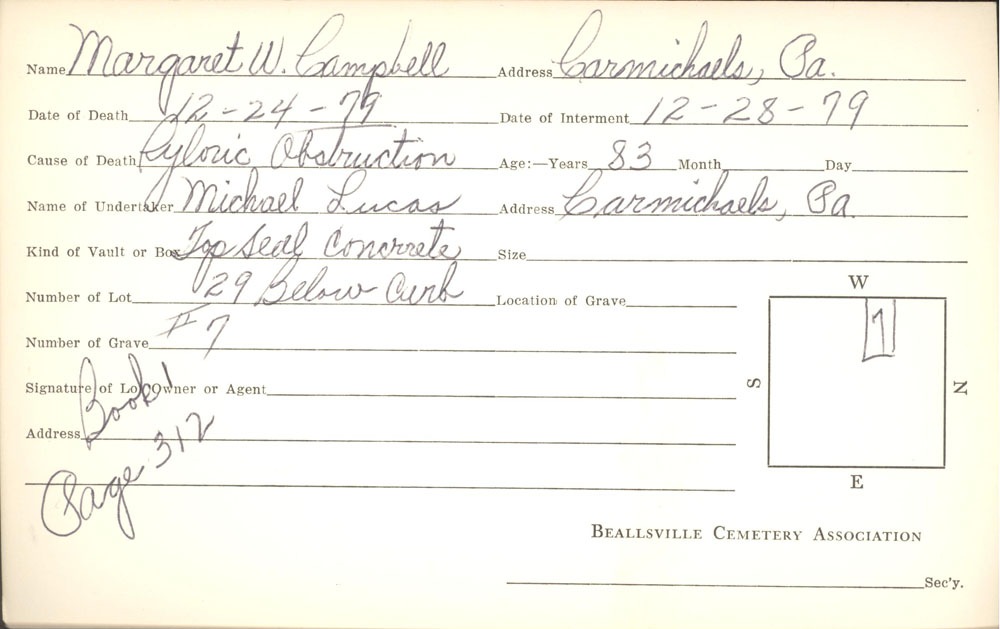 Name Margaret W. Campbell Address Carmichaels, Pa.
Date of Death 12-24-79 Date of Interment 12-28-79
Cause of Death Pyloric Obstruction Age:—Years 83 Month Day
Name of Undertaker Michael Lucas Address Carmichaels, Pa.
Kind of Vault or Box Top Seal Concrete Size
Number of Lot 29 Below Curb Location of Grave
Number of Grave #7
Signature of Lot Owner or Agent
Address
Book 1
Page 312
W
7
S
N
E
BEALLSVILLE CEMETERY ASSOCIATION
Sec'y.